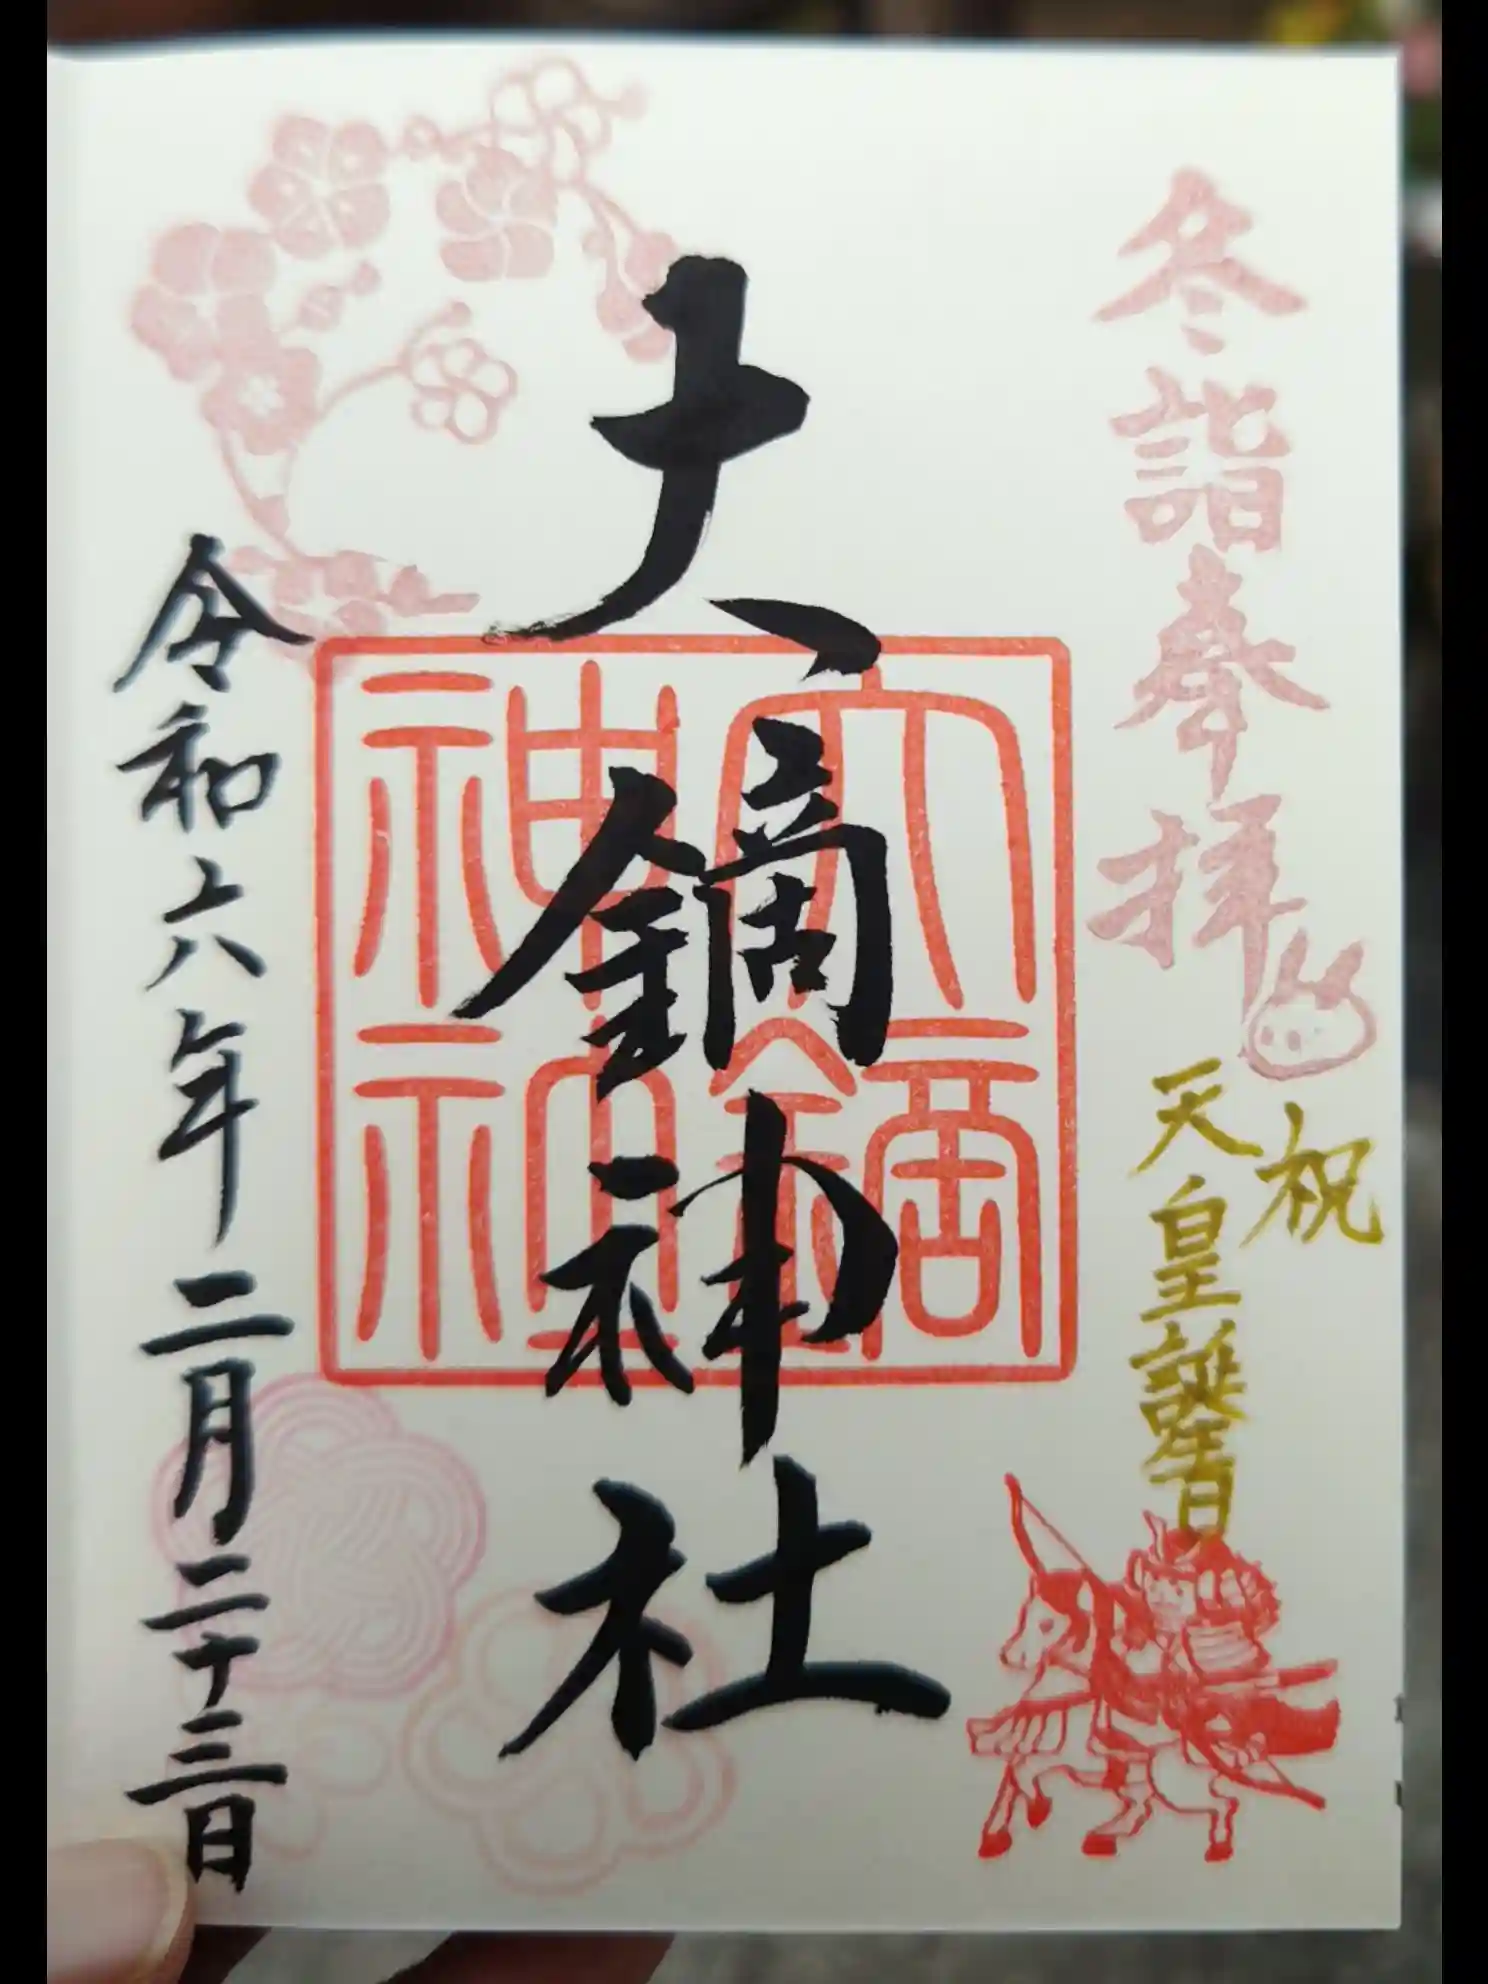 冬詣奉拝
祝
天皇誕生日
大鏑神社
大鏑
神社
令和六年二月二十三日